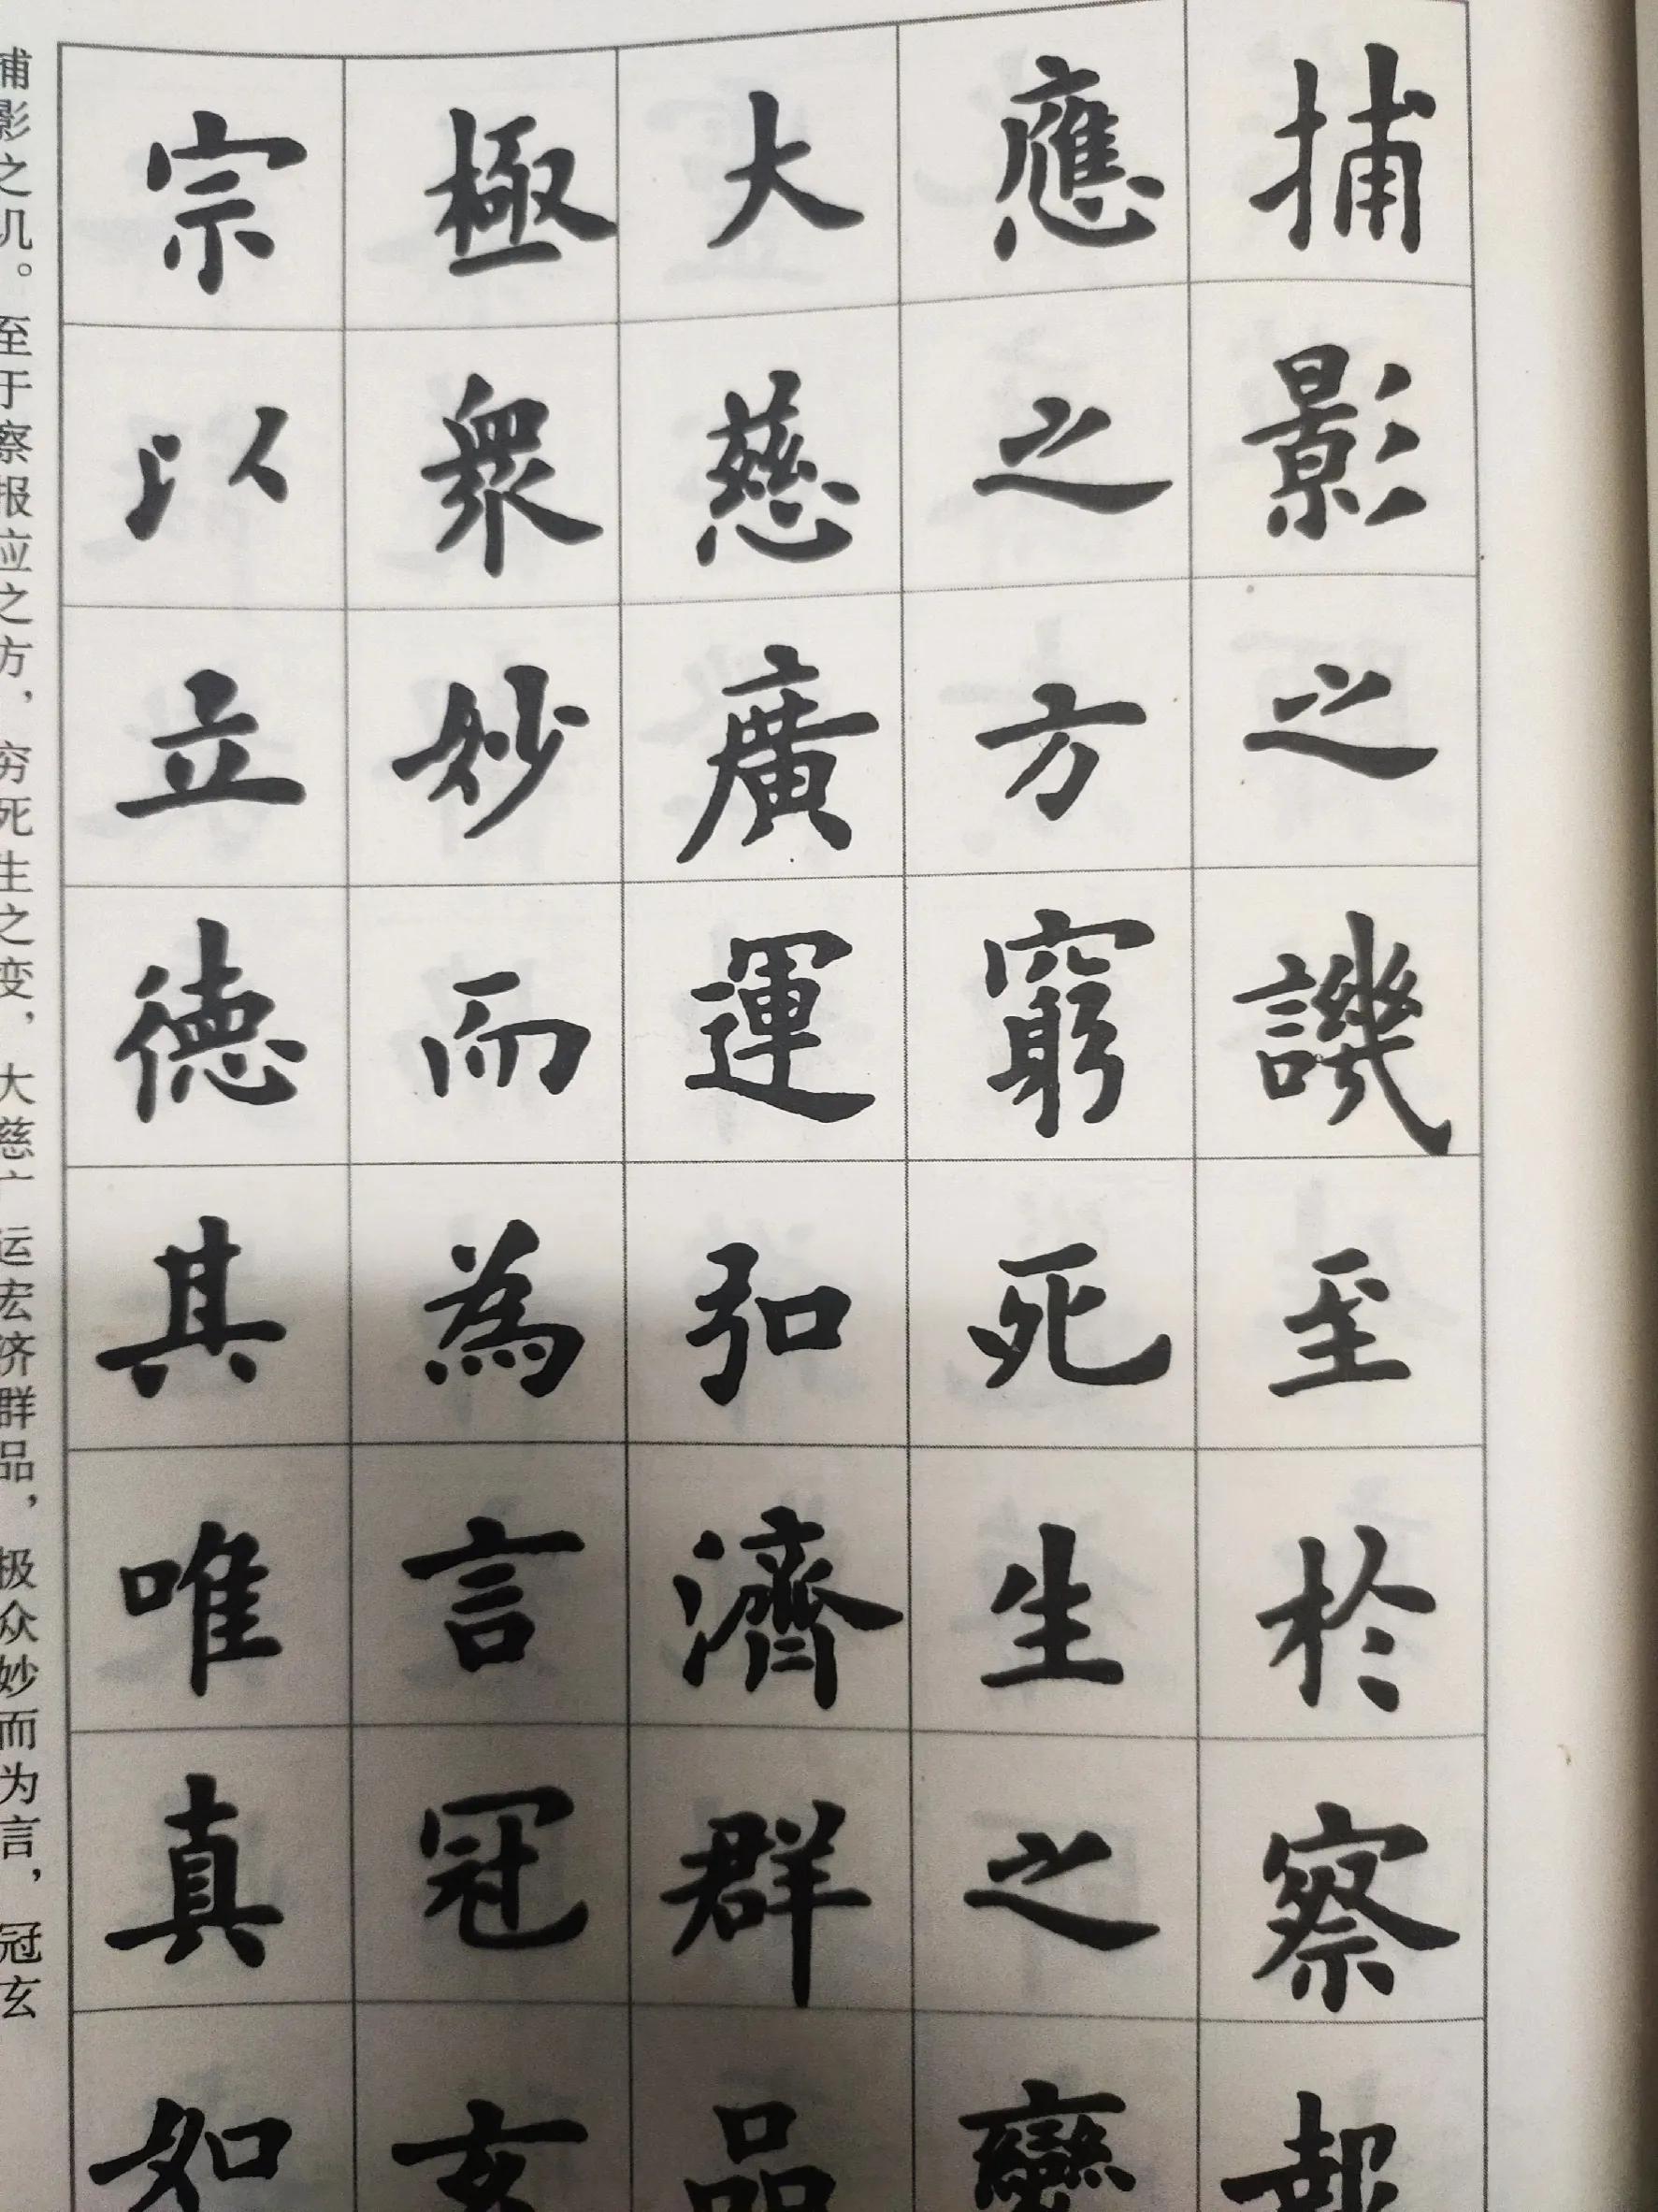 捕影之譏至於察報
應之方窮死生之變
大慈廣運弘濟群品
極衆妙而為言冠玄
宗以立德其唯真如
捕影之讥。至于察报应之方，穷死生之变，大慈广运宏济群品，极众妙而为言，冠玄